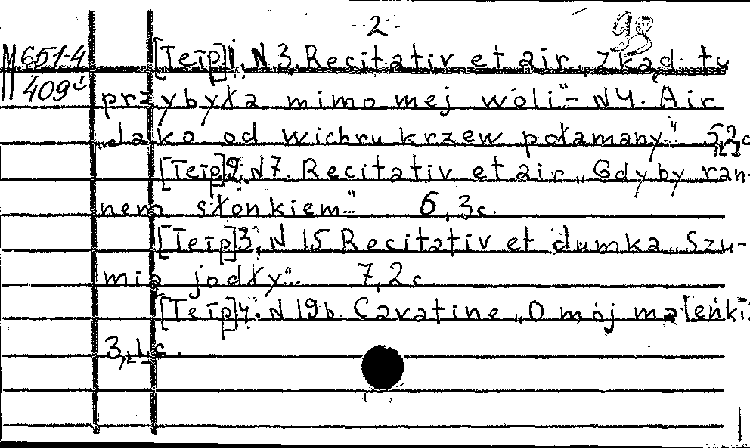 2
98
M651-4 [Teip]1. N 3. Recitativ et air „Zkąd ty
409 przybyła mimo mej woli" - N4. Air
„Jako od wichru krzew połamany." 5,2 c
[Teip]2. N7. Recitativ et air „Gdyby ran-
nem słonkiem" 6, 3 c.
[Teip]3. N 15 Recitativ et dumka „Szu-
mia jodły". 7,2 c
[Teip]4. N 19b. Cavatine „O mój maleńki
3, 1 c.